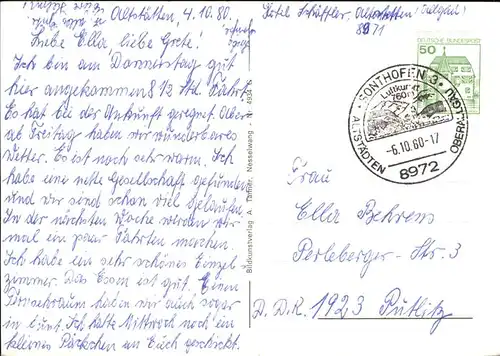 Altstätten, 4.10.80.
Liebe Ella, liebe Grete!
Ich bin am Donnerstag gut
hier angekommen 8 12 Std. Fahrt.
Es hat bei der Ankunft geregnet. Aber
ab Freitag haben wir wunderbares
Wetter. Es ist noch sehr warm. Ich
habe eine nette Gesellschaft gefunden
und wir sind schon viel gelaufen.
In der nächsten Woche werden wir
mal ein paar Fahrten machen.
Ich habe ein sehr schönes Einzel
zimmer. Das Essen ist gut. Einen
Fernsehraum haben wir auch sogar
in bunt. Ich habe Mittwoch noch ein
kleines Päckchen an Euch geschickt.
Bildkunstverlag A. Nesselwang 4934
Hotel
8971
50
DEUTSCHE BUNDESPOST
SONTHOFEN 3
Luftkurort
760m
ALTSTÄDTEN
OBERALLGÄU
-6.10.80-17
8972
Frau
Ella Behrens
Perleberger-Str. 3
D.D.R. 1923 Putlitz